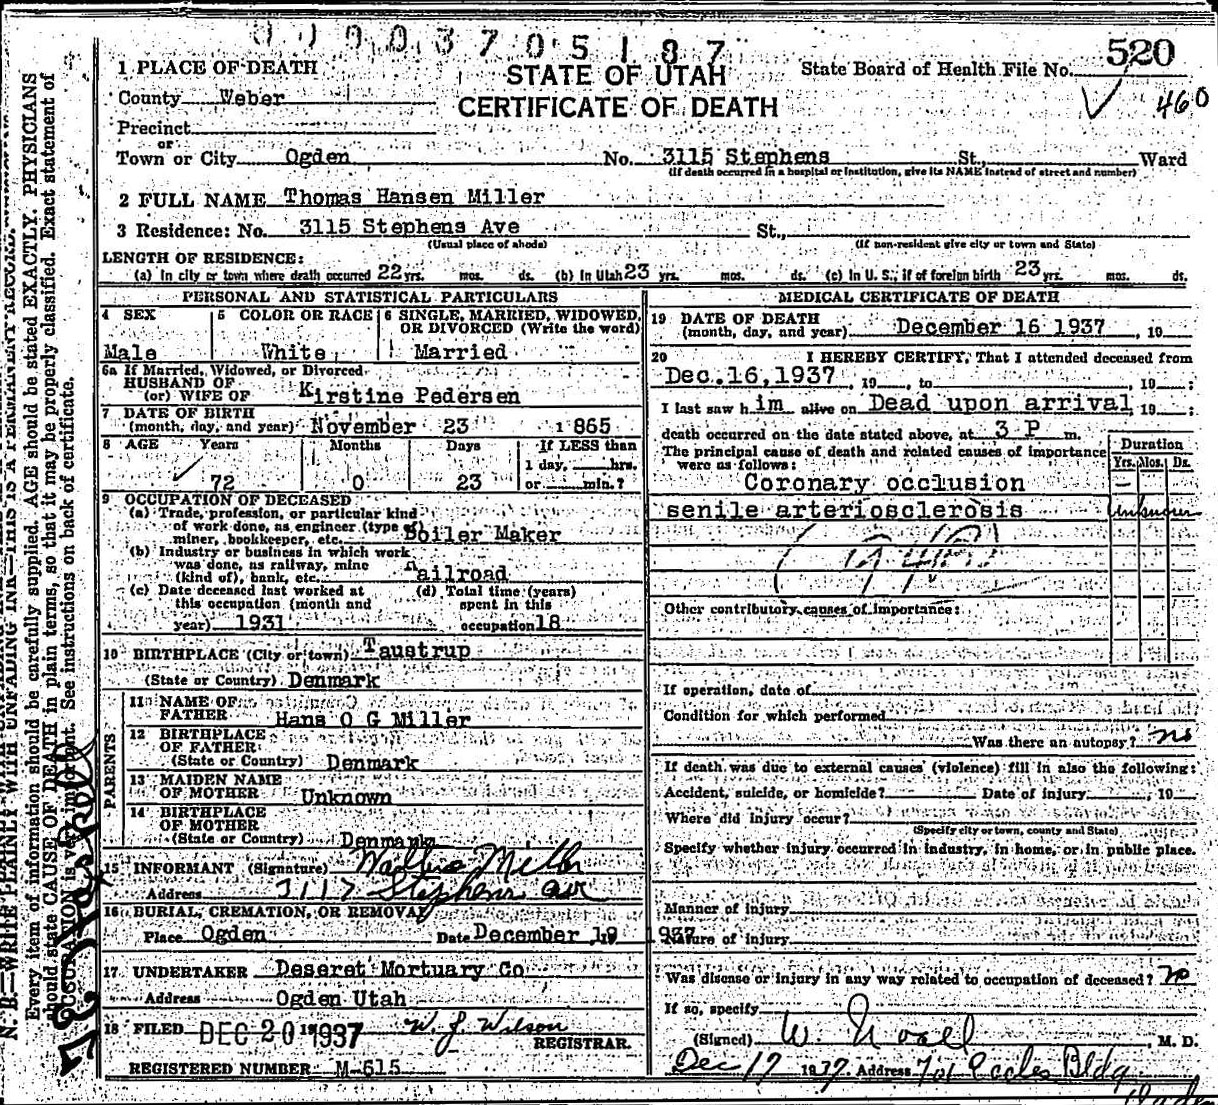 0 1 9 0 0 3 7 0 5 1 8 7
STATE OF UTAH
CERTIFICATE OF DEATH
State Board of Health File No. 520
460
1 PLACE OF DEATH
County Weber
Precinct
or
Town or City Ogden No. 3115 Stephens St., Ward
(If death occurred in a hospital or institution, give its NAME instead of street and number)
2 FULL NAME Thomas Hansen Miller
3 Residence: No. 3115 Stephens Ave St.,
(Usual place of abode) (If non-resident give city or town and State)
LENGTH OF RESIDENCE:
(a) In city or town where death occurred 22 yrs. mos. ds. (b) In Utah 23 yrs. mos. ds. (c) In U. S., if of foreign birth 23 yrs. mos. ds.
PERSONAL AND STATISTICAL PARTICULARS
4 SEX 5 COLOR OR RACE 6 SINGLE, MARRIED, WIDOWED, OR DIVORCED (Write the word)
Male White Married
6a If Married, Widowed, or Divorced
HUSBAND OF
(or) WIFE OF Kirstine Pedersen
7 DATE OF BIRTH
(month, day, and year) November 23 1865
8 AGE Years Months Days If LESS than
1 day, hrs.
72 0 23 or min.?
9 OCCUPATION OF DECEASED
(a) Trade, profession, or particular kind
of work done, as engineer (type of)
miner, bookkeeper, etc. Boiler Maker
(b) Industry or business in which work
was done, as railway, mine
(kind of), bank, etc. Railroad
(c) Date deceased last worked at
this occupation (month and
year) 1931
(d) Total time (years)
spent in this
occupation 18
10 BIRTHPLACE (City or town) Taustrup
(State or Country) Denmark
PARENTS
11 NAME OF
FATHER Hans O G Miller
12 BIRTHPLACE
OF FATHER
(State or Country) Denmark
13 MAIDEN NAME
OF MOTHER Unknown
14 BIRTHPLACE
OF MOTHER
(State or Country) Denmark
15 INFORMANT (Signature) Miller
Address 3117 Stephens ave
16 BURIAL, CREMATION, OR REMOVAL
Place Ogden Date December 19 1937
17 UNDERTAKER Deseret Mortuary Co
Address Ogden Utah
18 FILED DEC 20 1937 W. J. Wilson
REGISTRAR.
REGISTERED NUMBER M-615
MEDICAL CERTIFICATE OF DEATH
19 DATE OF DEATH
(month, day, and year) December 16 1937, 19
20 I HEREBY CERTIFY, That I attended deceased from
Dec.16,1937, 19, to , 19 ;
I last saw him alive on Dead upon arrival, 19 ;
death occurred on the date stated above, at 3 P m.
The principal cause of death and related causes of importance
were as follows:
Duration
Yrs. Mos. Ds.
Coronary occlusion —
senile arteriosclerosis Unknown
Other contributory causes of importance:
If operation, date of
Condition for which performed
Was there an autopsy? no
If death was due to external causes (violence) fill in also the following:
Accident, suicide, or homicide? Date of injury , 19
Where did injury occur?
(Specify city or town, county and State)
Specify whether injury occurred in industry, in home, or in public place.
Manner of injury
Nature of injury
Was disease or injury in any way related to occupation of deceased? no
If so, specify
(Signed) W. , M. D.
Dec 17 1937 Address 701 Eccles Bldg
Ogden
N. B.—WRITE PLAINLY WITH UNFADING INK—THIS IS A PERMANENT RECORD.
Every item of information should be carefully supplied. AGE should be stated EXACTLY. PHYSICIANS
should state CAUSE OF DEATH in plain terms, so that it may be properly classified. Exact statement of
OCCUPATION is very important. See instructions on back of certificate.